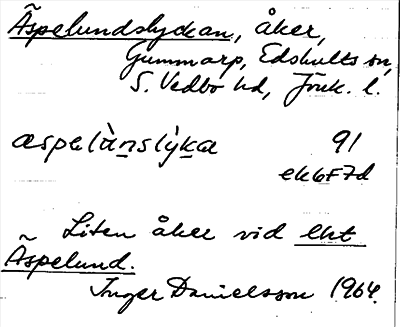 Äspelundslyckan, åker,
Gummarp, Edshults sn,
S. Vedbo hd, Jönk. l.
æspelùnslýka 91
ek6F7d
Liten åker vid lht
Äspelund.
Inger Danielsson 1964.